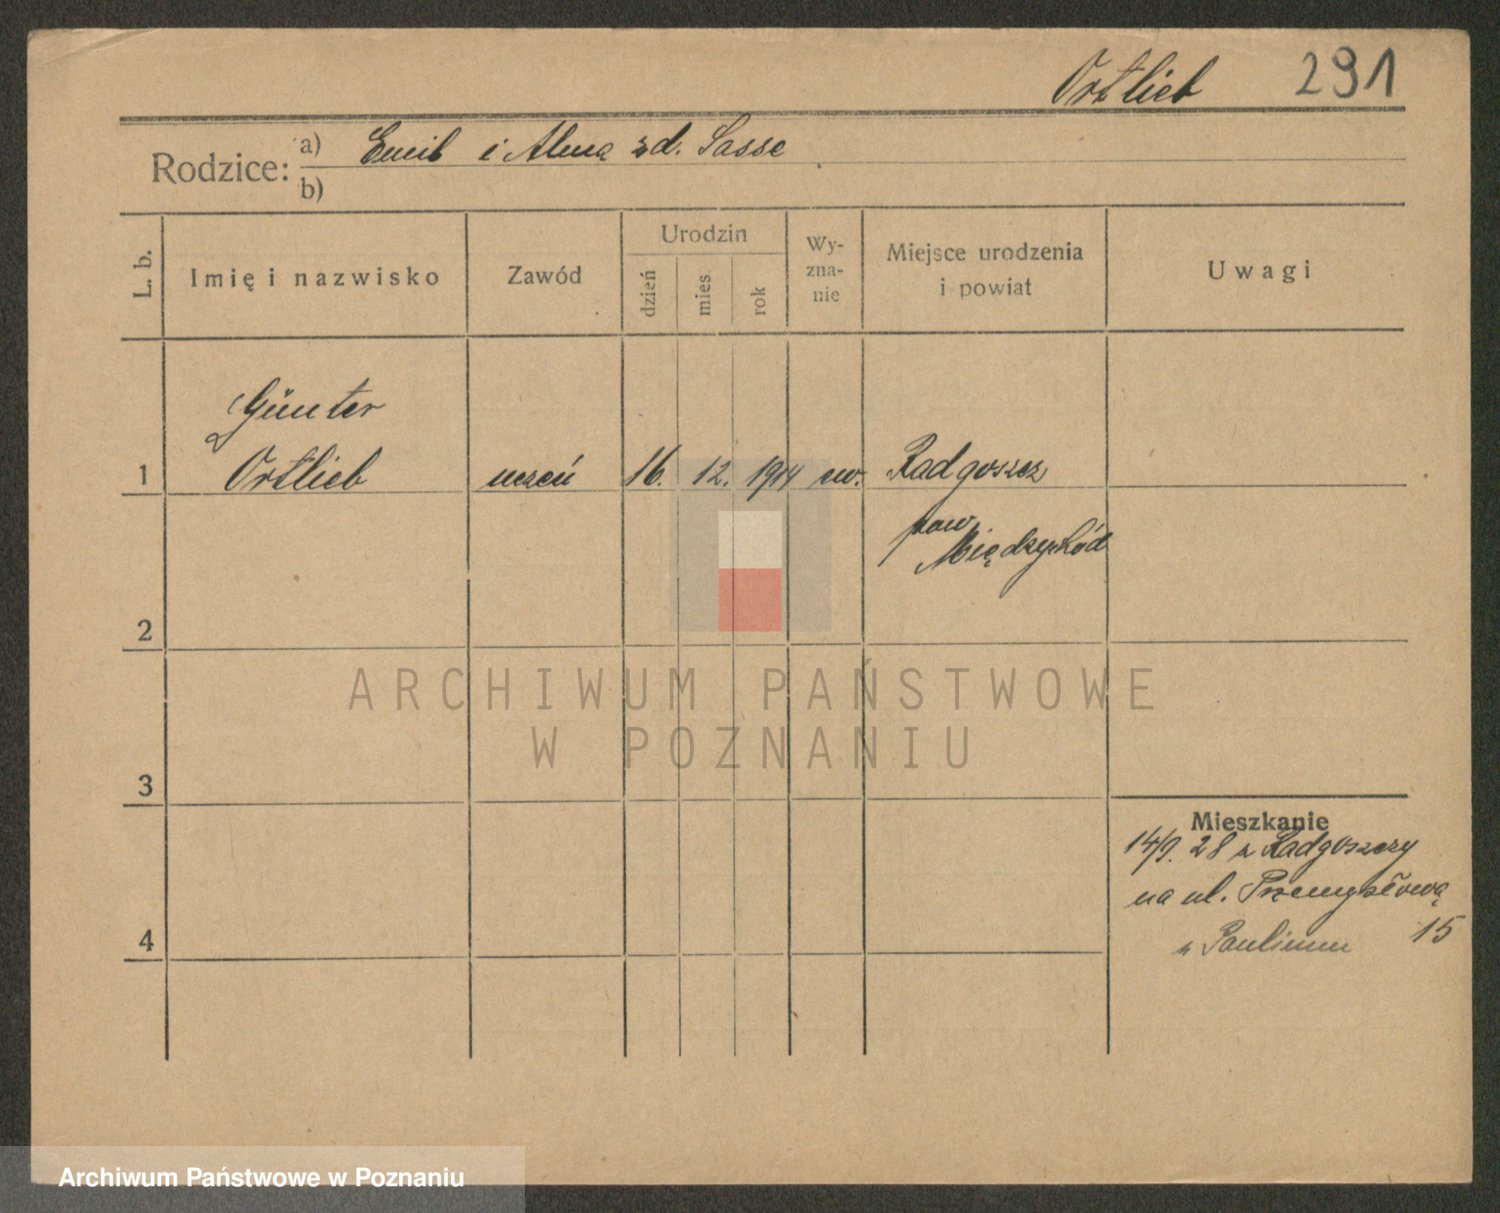 Ortlieb 291
Rodzice: a) Emil i Alma zd. Sasse
b)
L. b.
Imię i nazwisko
Zawód
Urodzin
dzień
mies.
rok
Wy-
zna-
nie
Miejsce urodzenia
i powiat
Uwagi
Günter
1 Ortlieb uczeń 16. 12. 1914 ew. Radgoszcz
pow
Międzychód
2
ARCHIWUM PAŃSTWOWE
W POZNANIU
3
Mieszkanie
14/9. 28 z Radgoszczy
na ul. Przemysłową
15
Paulinum
4
Archiwum Państwowe w Poznaniu